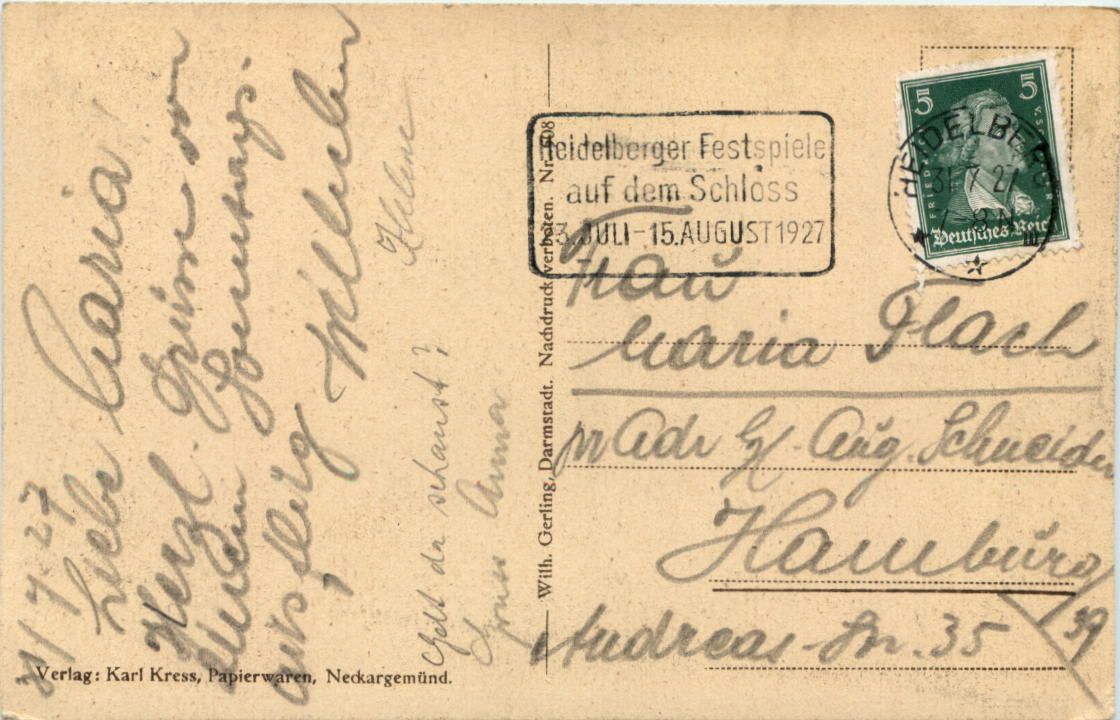 31/7 27
Liebe Maria!
Herzl. Grüsse von
einem Sonntags-
ausflug
Helene
Gelt da schaust?
Gruss Anna
Verlag: Karl Kress, Papierwaren, Neckargemünd.
Wilh. Gerling, Darmstadt. Nachdruck verboten. Nr.
Heidelberger Festspiele
auf dem Schloss
JULI-15.AUGUST 1927
5 5
HEIDELBERG
31 7 27
Deutsches Reich
Frau
Maria Flach
pr Adr Aug. Schneider
Hamburg
39
Andreas-Str. 35